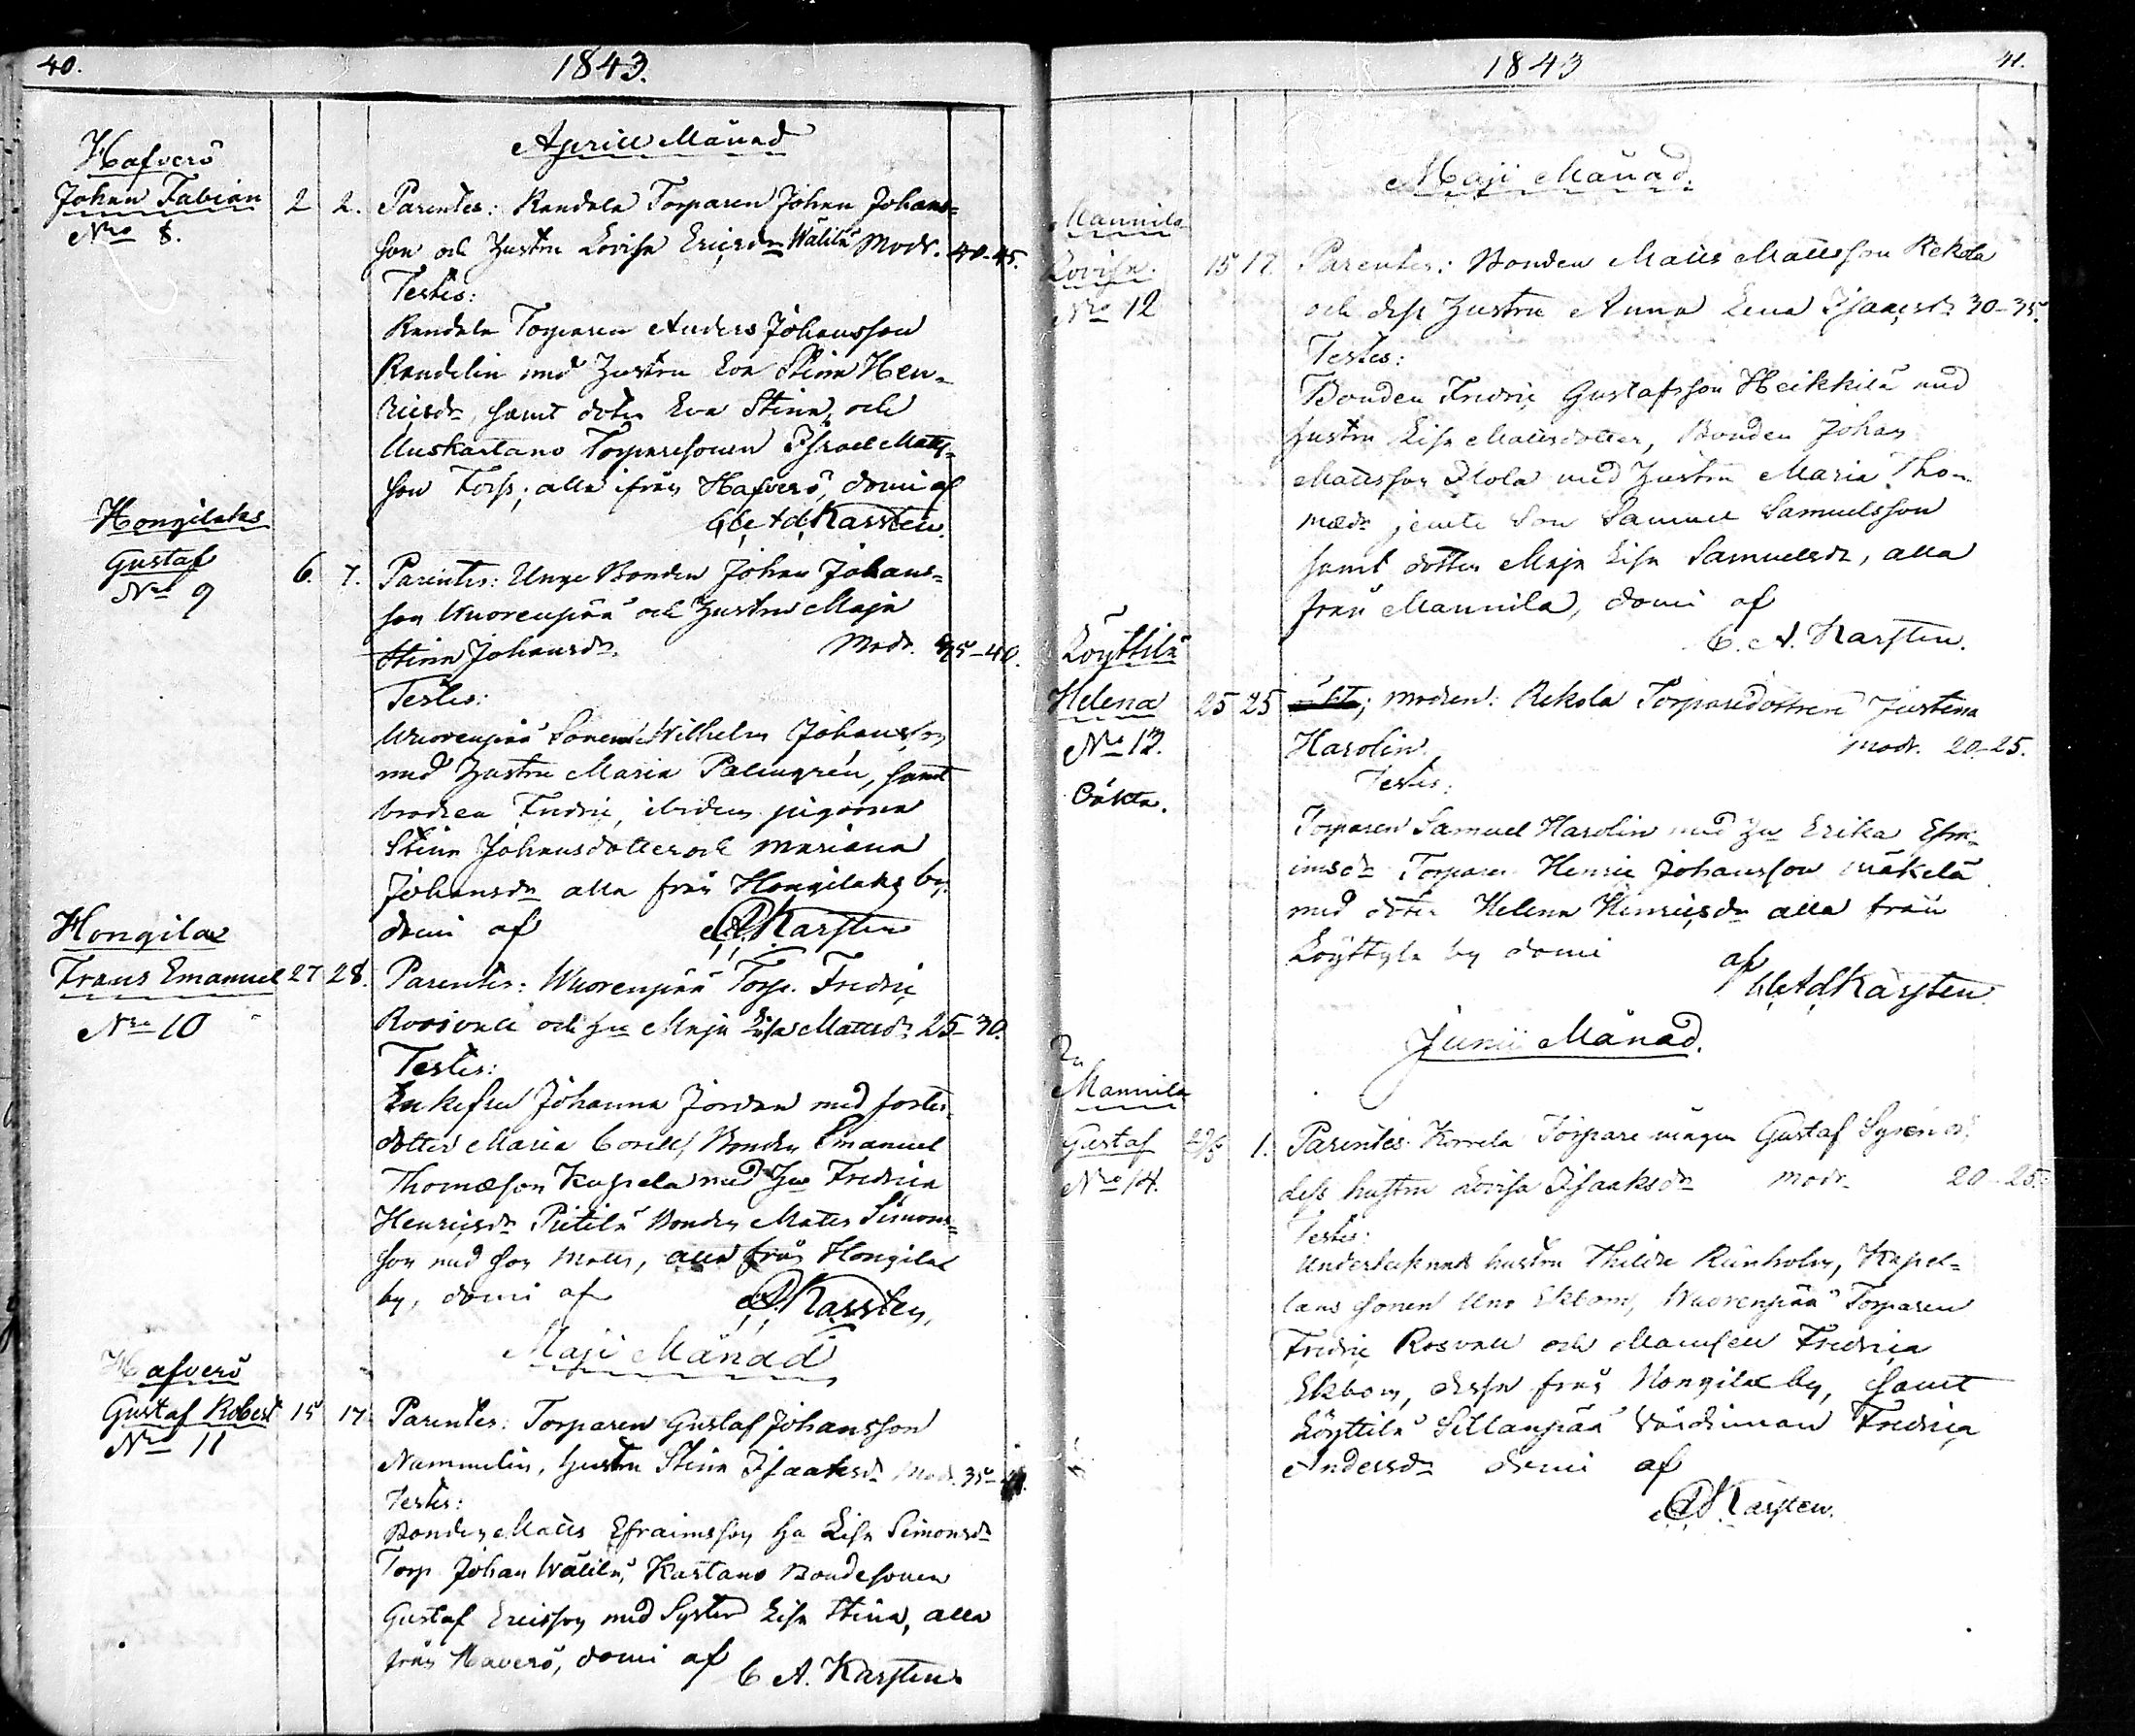 40.
1843.
Aprill Månad
Hafverö
Johan Fabian 2 2. Parentes: Randala Torparen Johan Johans=
Nro 8.
son och Hustru Lovisa Ericsdr Wälilä Modr. 40-45.
Testes:
Randala Torparen Anders Johansson
Randelin med Hustru Eva Stina Hen-
ricsdr, samt doter Eva Stina, och
Uuskartano Torparesonen Israel Matts-
son Forss; alla ifrån Hafverö, domi af
C. Ad. Karsten.
Hongilaks
Gustaf 6. 7. Parentes: Unge Bonden Johan Johans=
No 9
son Wuorenpää och Hustru Maja
Stina Johansdr. Modr. 35-40.
Testes:
Wuorenpää Sonen Wilhelm Johansson
med Hustru Maria Palmgrén, samt
brodren Fredric, ibidem pigorna
Stina Johansdotter och Mariana
Johansdr alla från Hongilaks by.
domi af C. A. Karsten
Hongilax
Frans Emanuel 27 28. Parentes: Wuorenpää Torp. Fredric
Nro 10
Roosvall och Hu Maja Lisa Mattsdr 25-30.
Testes:
Enkefru Johanna Jordan med foster-
dotter Maria Corell, Bonden Emanuel
Thomasson Kappela med Hu Fredrica
Henricsdr Pietilä Bonden Matts Simons=
son med son Matts, alla från Hongilax
by, domi af C. A. Karsten,
Maji Månad
Hafverö
Gustaf Robert 15 17. Parentes: Torparen Gustaf Johansson
No 11
Nummelin, Hustru Stina Isaaksdr Modr. 35-
Testes:
Bonden Matts Efraimsson Hu Lisa Simonsdr
Torp. Johan Wälilä, Kartano Bondesonen
Gustaf Ericsson med Syster Lisa Stina, alla
från Haverö, domi af C A. Karsten
1843
41.
Maji Månad.
Mannila
Lovisa. 15 17. Parentes: Bonden Matts Mattsson Rekola
No 12
och dess Hustru Anna Lena Isaacsdr 30-35.
Testes:
Bonden Fredric Gustafsson Heikkilä med
hustru Lisa Mattsdotter, Bonden Johan
Mattsson Ilola med Hustru Maria Tho-
masdr jemte Son Samuel Samuelsson
samt dotter Maja Lisa Samuelsdr, alla
från Mannila, domi af
C. A. Karsten.
Löyttilä
Helena 25 25 modren: Rekola Torparedottren Justina
No 13.
Harolin. Modr. 20-25.
Oäkta.
Testes:
Torparen Samuel Harolin med Hu Erika Efra-
imsdr Torparen Henric Johansson Mäkelä
med doter Helena Henricsdr alla från
Löyttylä by domi af
C. Ad. Karsten
Junii Månad.
Mannila
Gustaf 29/5 1. Parentes Korvela Torpare mågen Gustaf Syrén o.
No 14.
dess hustru Lovisa Isaaksdr Modr. 20-25.
Testes:
Undertecknads hustru Thilda Rünholm, Kapel-
lans sonen Uno Ekbom, Wuorenpää Torparen
Fredric Rosvall och Mamsell Fredrica
Ekbom, dessa från Hongilax by, samt
Löyttilä Sillanpää Värdinnan Fredrica
Andersdr domi af
C. A. Karsten.